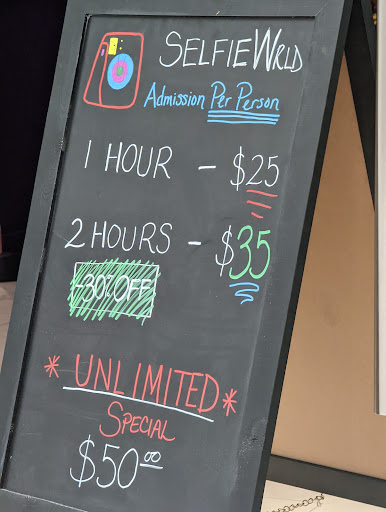 SELFIEWRLD
Admission Per Person
1 HOUR - $25
2 HOURS - $35
-30% OFF
* UNLIMITED *
SPECIAL
$50.00